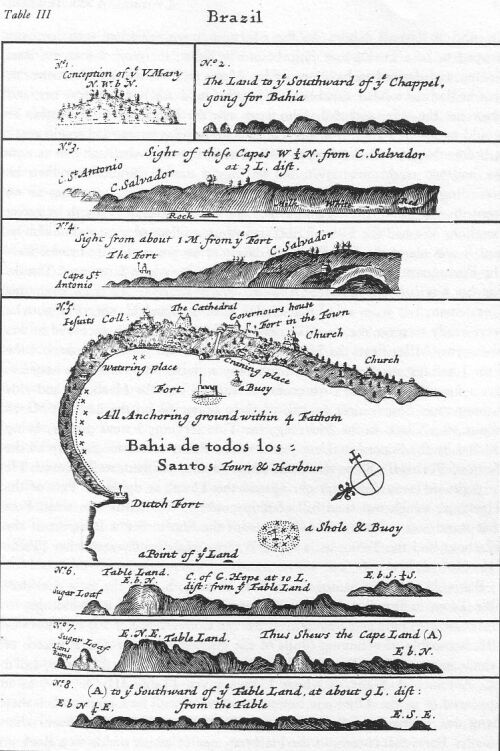 Table III
Brazil
No 1.
Conception of yᵉ V.Mary
N. W b N.
No 2.
The Land to yᵉ Southward of yᵉ Chappel,
going for Bahia
No 3.
Sight of these Capes W ½ N. from C. Salvador
at 3 L. dist.
C. Sᵗ Antonio
C. Salvador
Milk
White
Red
Rock
No 4.
Sight from about 1 M. from yᵉ Fort
C. Salvador
The Fort
Cape Sᵗ
Antonio
No 5.
Iesuits Coll.
The Cathedral
Governours house
Fort in the Town
Church
Church
watering place
Craning Place
a Buoy
Fort
All Anchoring ground within 4 Fathom
Bahia de todos los :
Santos Town & Harbour
Dutch Fort
a Shole & Buoy
a Point of yᵉ Land
No 6.
Table Land.
E. b. N.
C. of G. Hope at 10 L.
dist: from yᵉ Table Land
E. b S. ½ S.
Sugar Loaf
No 7.
Sugar Loaf
E. N. E. Table Land.
Thus Shews the Cape Land (A)
E b N.
No 8.
(A) to yᵉ Southward of yᵉ Table Land, at about 9 L. dist:
from the Table
E b N ½ E.
E. S. E.